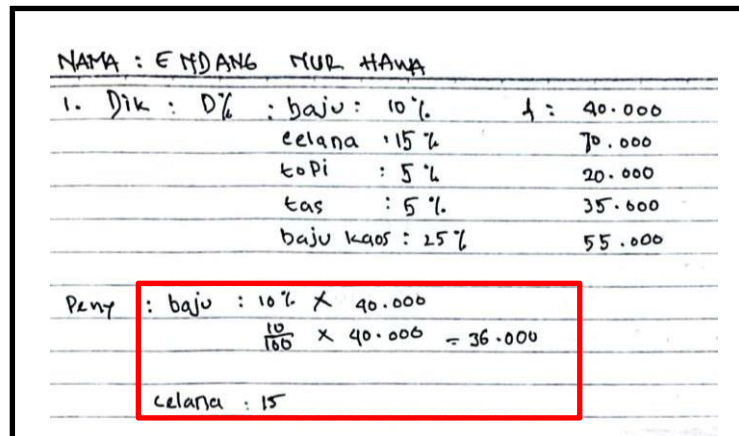 NAMA : ENDANG NUR HAWA
1. Dik : D% : baju : 10% f : 40.000
celana : 15% 70.000
topi : 5% 20.000
tas : 5% 35.000
baju kaos : 25% 55.000
Peny : baju : 10% × 40.000
10/100 × 40.000 = 36.000
celana : 15